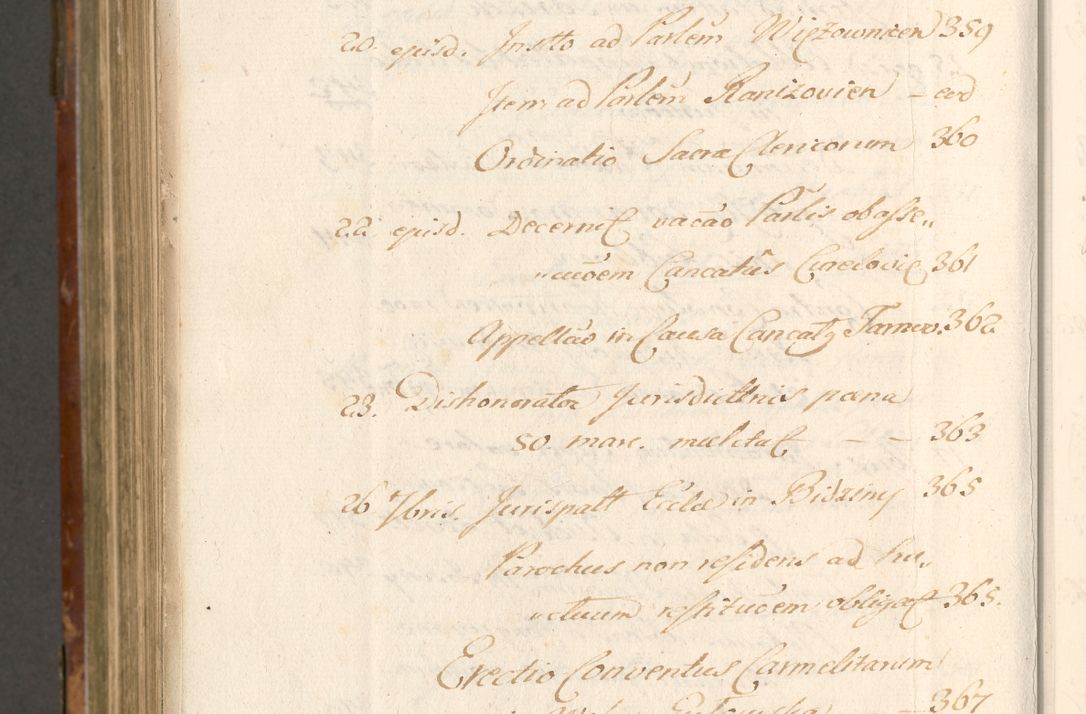 20 ejusd. Instto ad Parlem Więzownicen 359
Item ad Parlem Ranizovien – eod
Ordinatio Sacra Clericorum 360
22 ejusd. Decernit vacao Parlis ob asse„
„cuoem Cancatus Curelovie 361
Appellao in Causa Cancatg Tarnov. 362
23. Dishonorator Jurisdictnis poena
50 marc. mulctat – – 363
26 7bris. Jurispatt Eccla in Bidziny 365
Parochus non residens ad fru„
„ctuum restituoem obligat 365.
Erectio Conventus Carmelitarum
367